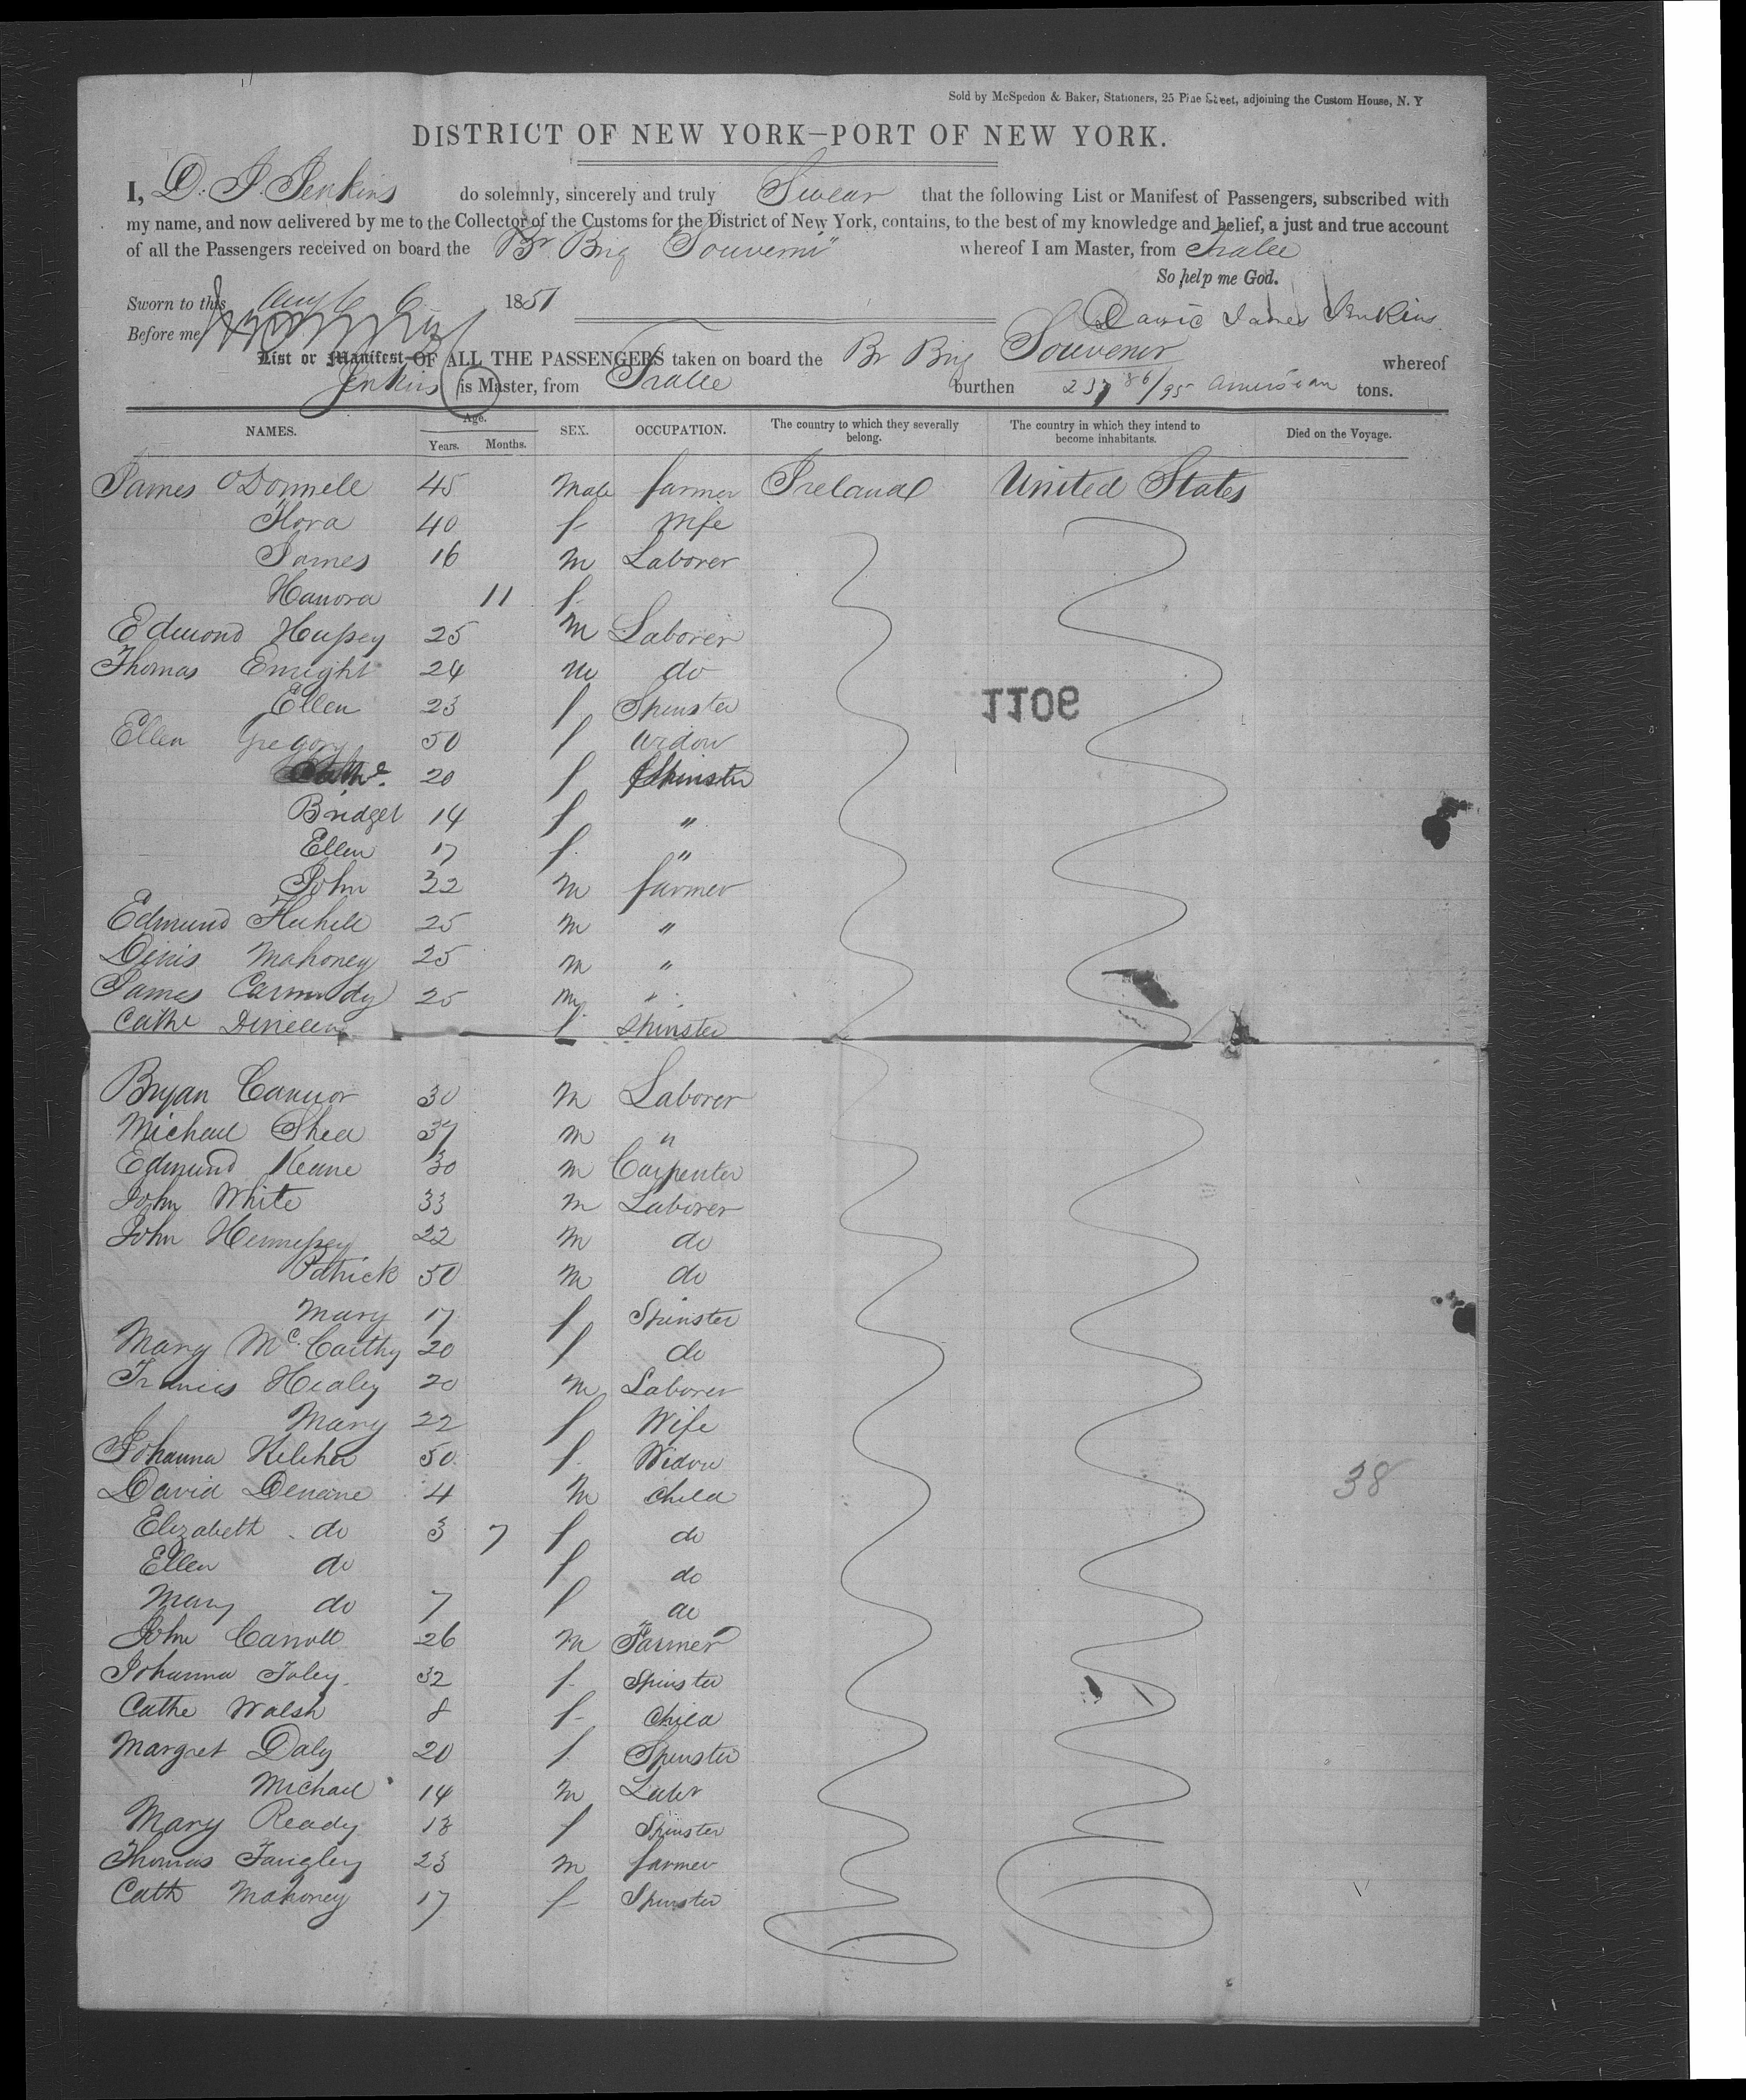 Sold by McSpedon & Baker, Stationers, 25 Pine Street, adjoining the Custom House, N. Y
DISTRICT OF NEW YORK—PORT OF NEW YORK.
I, D. J. Jenkins do solemnly, sincerely and truly Swear that the following List or Manifest of Passengers, subscribed with
my name, and now delivered by me to the Collector of the Customs for the District of New York, contains, to the best of my knowledge and belief, a just and true account
of all the Passengers received on board the Br. Brig Souvenir whereof I am Master, from Tralee
So help me God.
Sworn to this Aug 6 1851
David James Jenkins
Before me
List or Manifest OF ALL THE PASSENGERS taken on board the Br Brig Souvenir whereof
Jenkins is Master, from Tralee burthen 237 86/95 American tons.
NAMES. Age. Years. Months. SEX. OCCUPATION. The country to which they severally belong. The country in which they intend to become inhabitants. Died on the Voyage.
James O'Donnell 45 Male farmer Ireland United States
Hora 40 f Wife
James 16 m Laborer
Hanora 11 f
Edmond Hussey 25 m Laborer
Thomas Enright 24 m do
Ellen 23 f Spinster
1106
Ellen Gregory 50 f Widow
Cathe. 20 f Spinster
Bridget 14 f "
Ellen 17 f "
John 22 m farmer
Edmund 25 m "
Denis Mahoney 25 m "
James Carmody 25 m "
Cathe f Spinster
Bryan Connor 30 m Laborer
Michael Shea 37 m "
Edmund Keane 30 m Carpenter
John White 33 m Laborer
John Hennessey 22 m do
Patrick 50 m do
Mary 17 f Spinster
Mary McCarthy 20 f do
Francis Healey 20 m Laborer
Mary 22 f Wife
Johanna Keleher 50 f Widow
38
David Denane 4 m child
Elizabeth do 3 7 f do
Ellen do f do
Mary do 7 f do
John Carroll 26 m Farmer
Johanna Foley 32 f Spinster
Cathe Walsh 8 f child
Margret Daly 20 f Spinster
Michael 14 m Labr
Mary Ready 18 f Spinster
Thomas 23 m farmer
Cath Mahoney 17 f Spinster